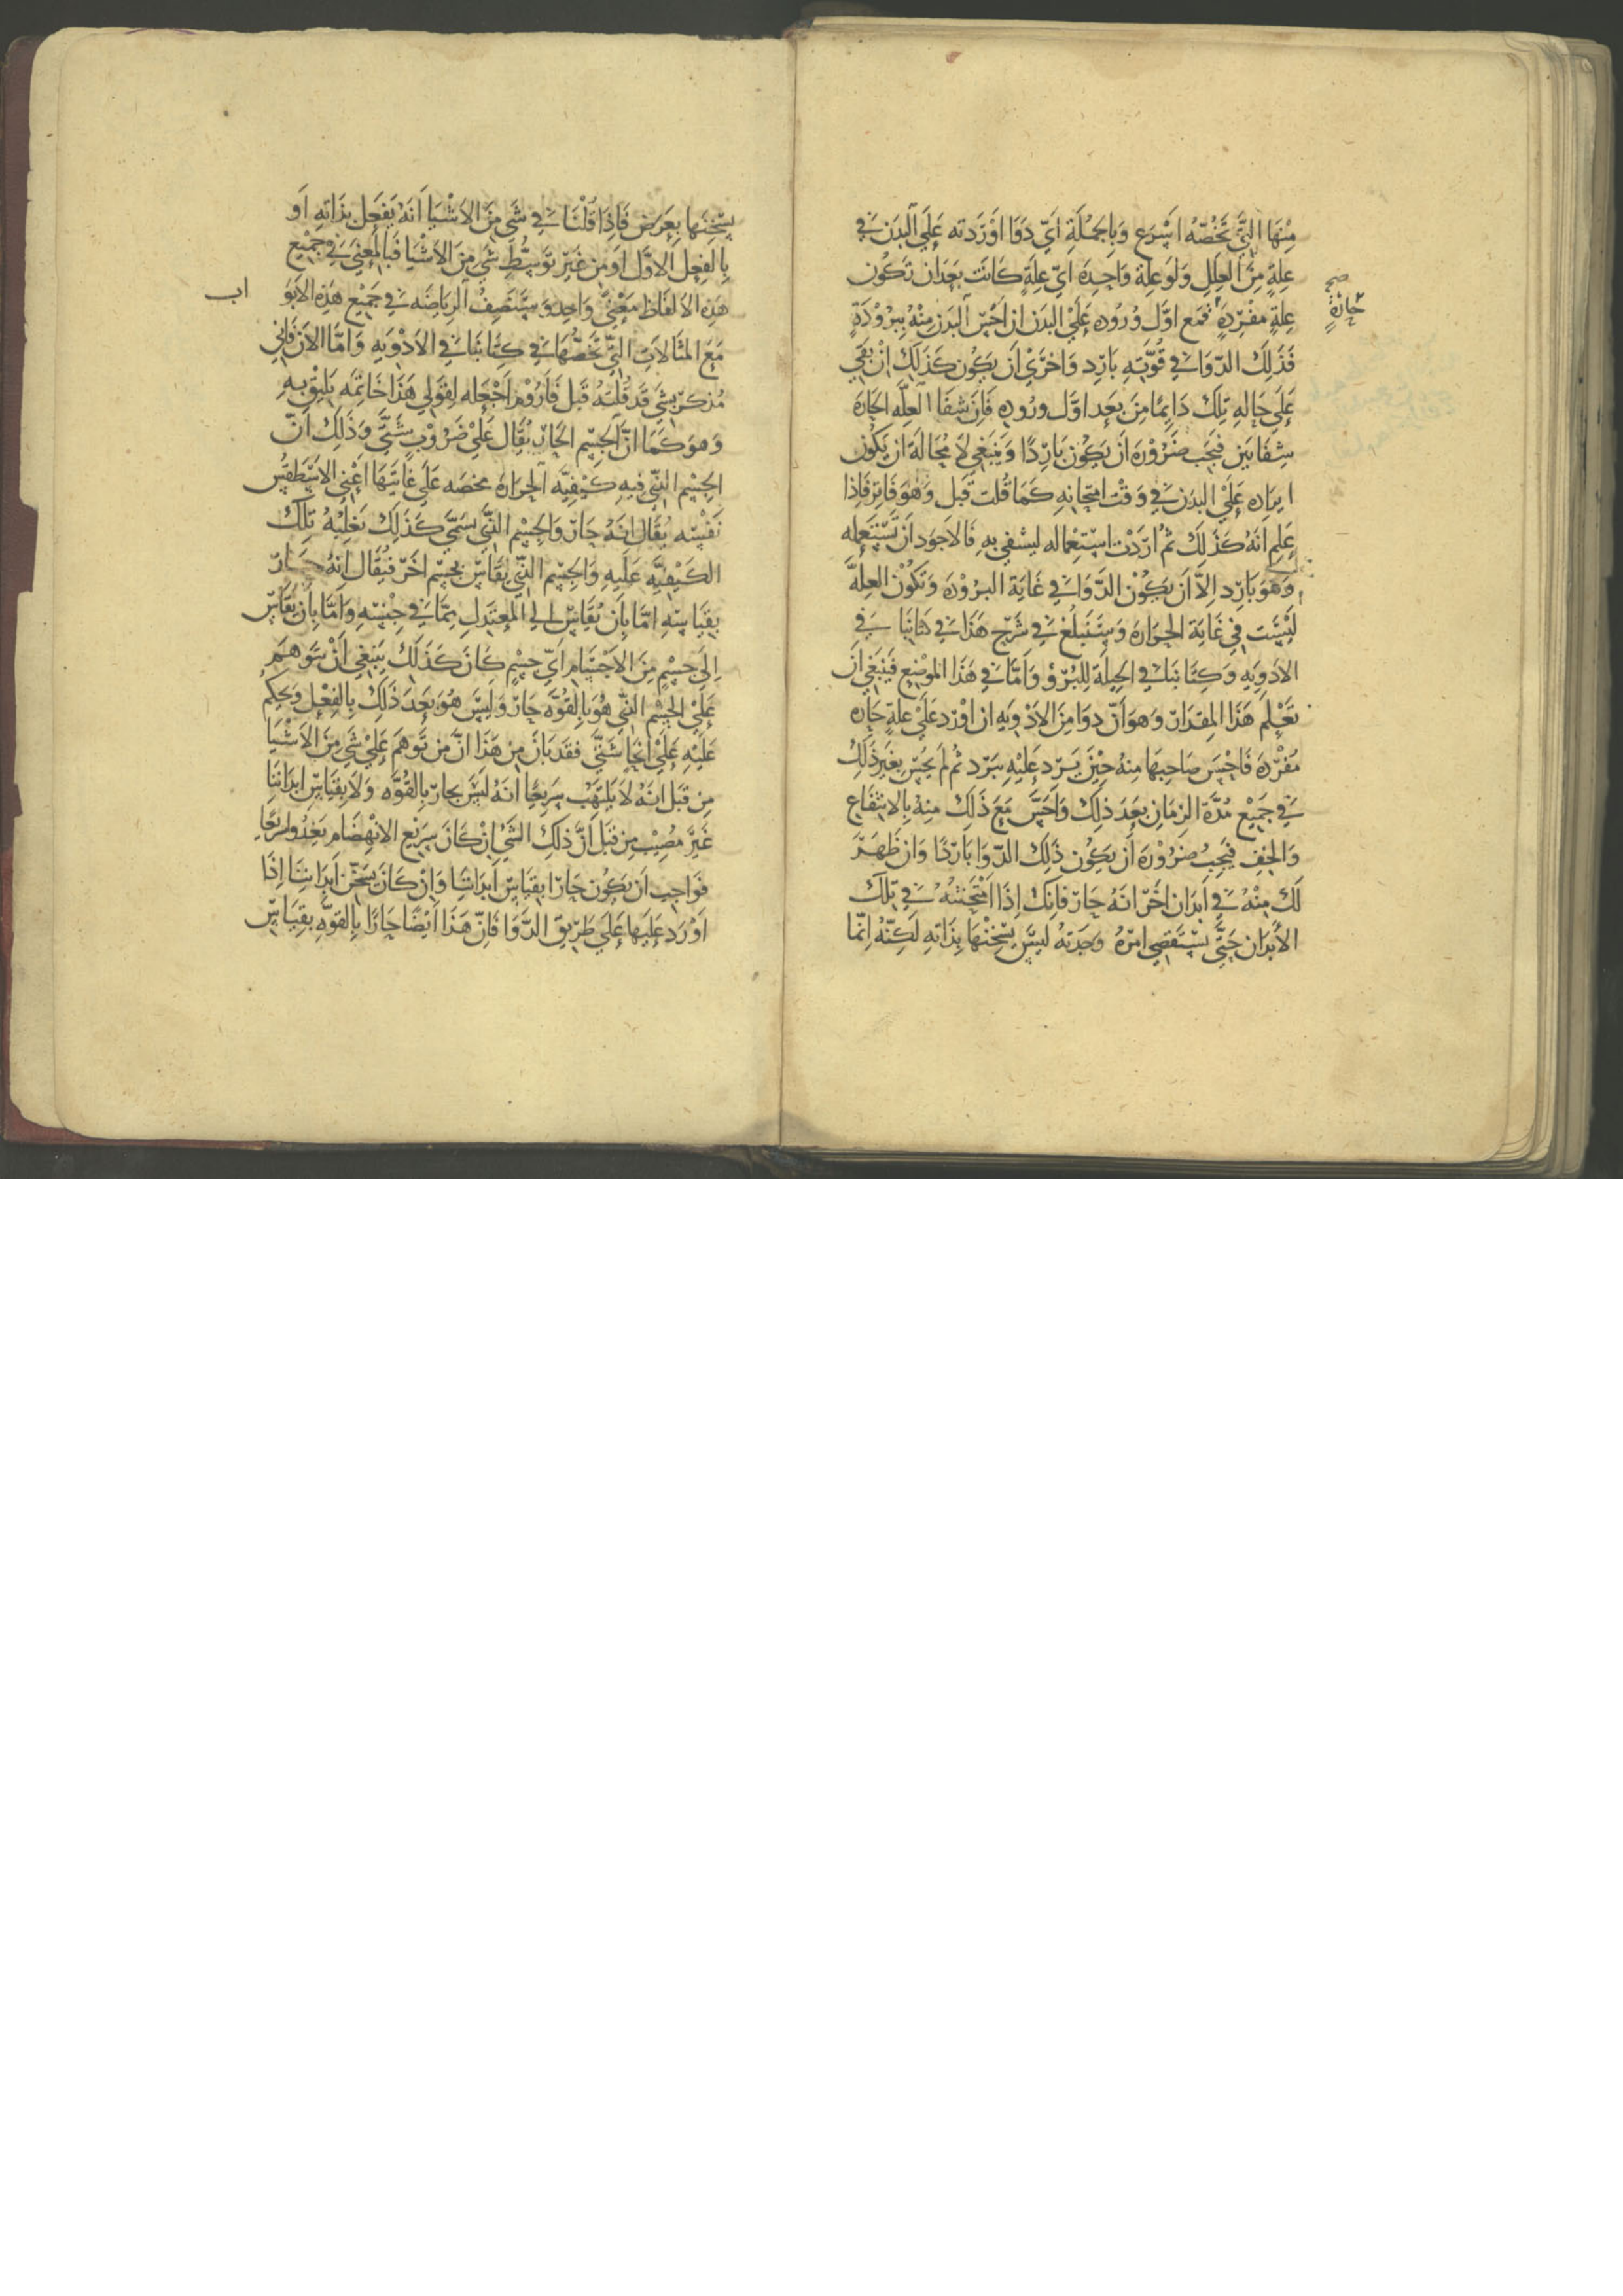 منها التي تخصه اسرع وبالجملة اي دوا اوردته علي البدن في
علة من العلل ولو علة واحده اي علة كانت بعد ان تكون
علة مفرده فمع اول وروده علي البدن ان احس البدن منه ببرودة
صح
حارة
فذلك الدوا في قوته بارد واحري ان يكون كذلك ان بقي
علي حاله تلك دايما من بعد اول وروده فان شفا العله الحاره
شفا بين فيجب ضروره ان يكون باردا وينبغي لا محالة ان يكون
ايراده علي البدن في وقت امتحانه كما قلت قبل وهو فاتر فاذا
علم انه كذلك ثم اردت استعماله ليشفي به فالاجود ان تستعمله
وهو بارد الا ان يكون الدوا في غاية البروده وتكون العله
ليست في غاية الحراره وسنبلغ في شرح هذا في كتابنا في
الادويه وكتابنا في الحيلة للبرؤ واما في هذا الموضع فينبغي ان
تعلم هذا المقدار وهو ان دوا من الادويه ان اورد علي علة حاره
مفرده فاحس صاحبها منه حين يرد عليه ببرد ثم لم يحس بغير ذلك
في جميع مدة الزمان بعد ذلك واحس مع ذلك منه بالانتفاع
والخف فيجب ضروره ان يكون ذلك الدوا باردا وان ظهر
لك منه في ابدان اخر انه حار فانك اذا امتحنته في تلك
الابدان حتي تستقصي امره وجدته ليس يسخنها بذاته لكنه انما
يسخنها بعرض فاذا قلنا في شي من الاشيا انه يفعل بذاته او
بالفعل الاول او من غير توسط شي من الاشيا فبالمعني في جميع
هذه الالفاظ معني واحد وستصف الرياضه في جميع هذه الابو اب
مع المثالات التي تخصها في كتابنا في الادويه واما الان فاني
مذكر بشي قد قلته قبل فاروم اجعله لقولي هذا خاتمه يليق به
وهو كما ان الجسم الحار يقال علي ضروب شتي وذلك ان
الجسم الذي فيه كيفيه الحراره محضه علي غايتها اعني الاسطقس
نفسه يقال انه حار والجسم الذي سمي كذلك بغلبة تلك
الكيفيه عليه والجسم الذي يقاس بجسم اخر فيقال انه حار
بقياسه اما بان يقاس الي المعتدل مما في جنسه واما بان يقاس
الي جسم من الاجسام اي جسم كان كذلك ينبغي ان يتوهم
علي الجسم الذي هو بالقوه حار وليس هو بعد ذلك بالفعل ويحكم
عليه علي انحا شتي فقد بان من هذا ان من توهم علي شي من الاشيا
من قبل انه لا يلتهب سريعا انه ليس بحار بالقوه ولا بقياس ابداننا
غير مصيب من قبل ان ذلك الشي ان كان سريع الانهضام يغذوا سريعا
فواجب ان يكون حارا بقياس ابداننا وان كان يسخن ابداننا اذا
اورد عليها علي طريق الدوا فان هذا ايضا حارا بالقوه بقياس